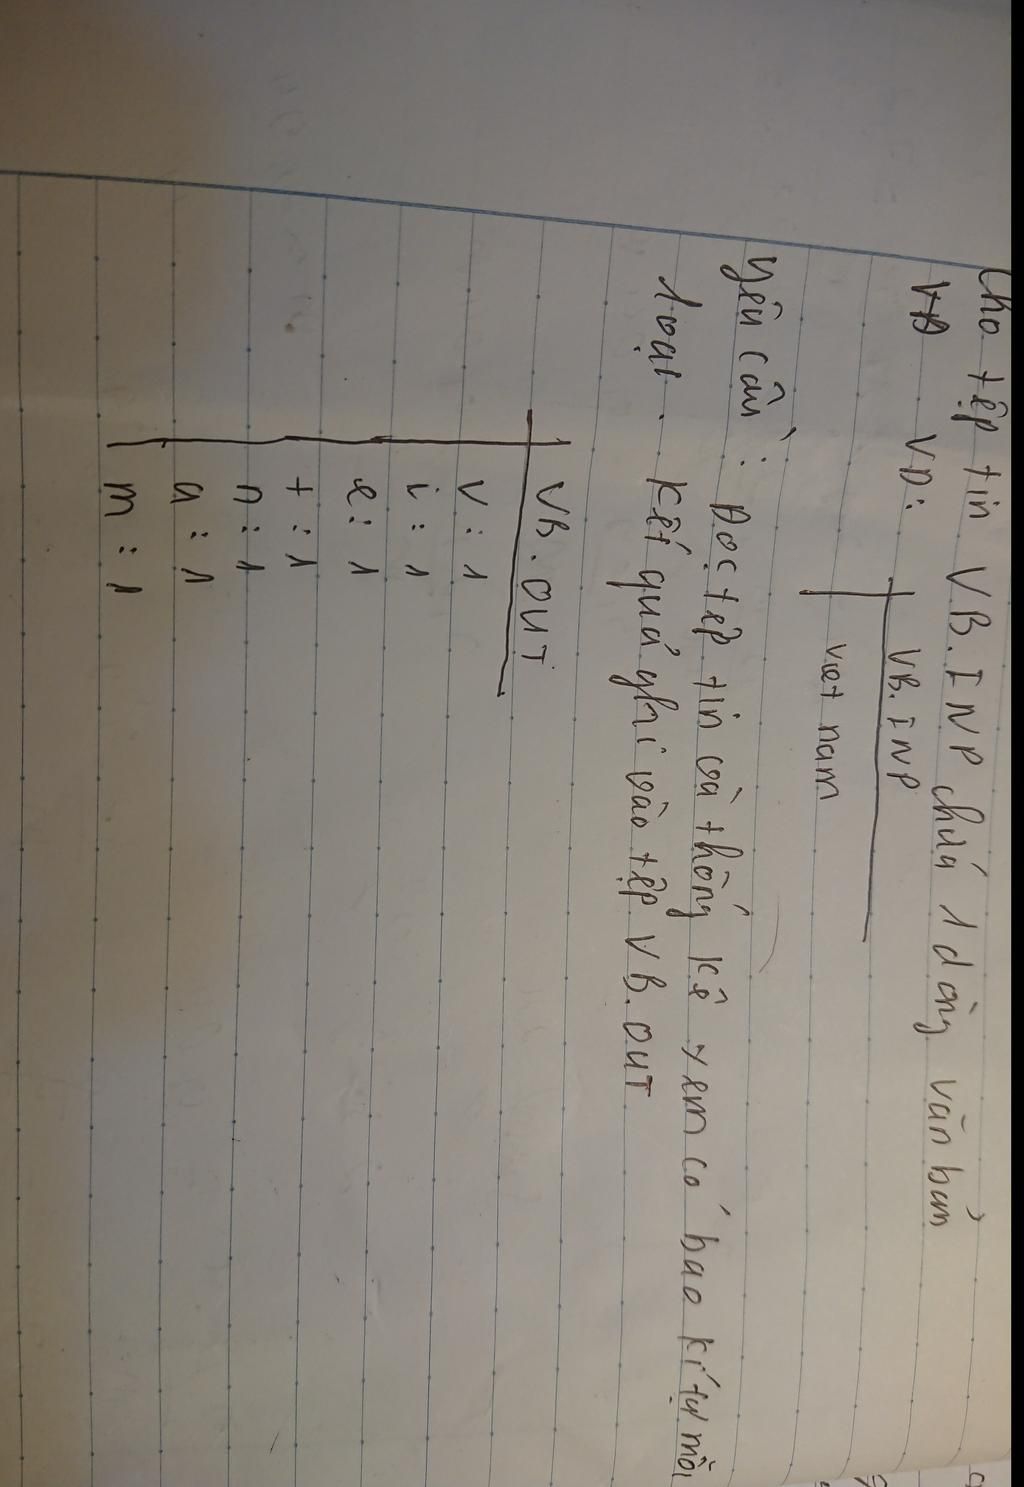 Cho tệp tin VB.INP chứa 1 dòng văn bản
VD VD:
VB.INP
viet nam
yêu cầu: Đọc tệp tin và thống kê xem có bao kí tự mỗi
loại. Kết quả ghi vào tệp VB.OUT
VB.OUT
v: 1
i: 1
e: 1
t: 1
n: 1
a: 1
m: 1